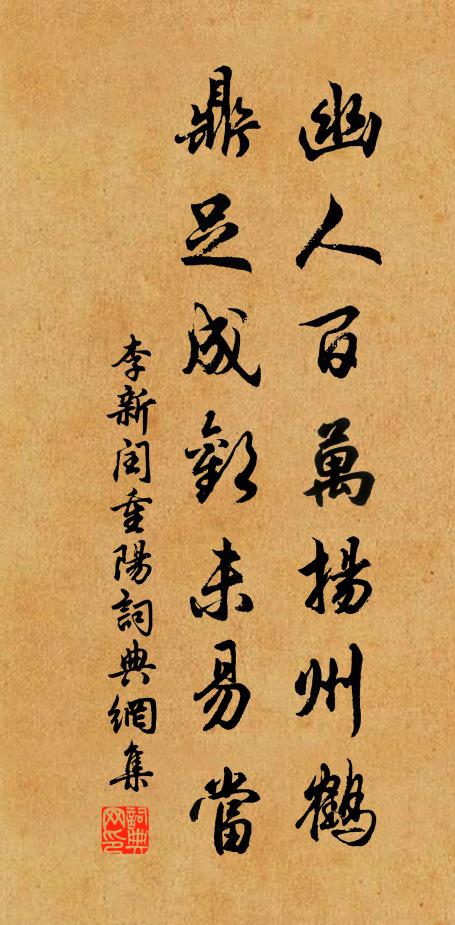 幽人百萬揚州鶴
鼎足成歡未易當
李新閏重陽詞典網集
詞典网印